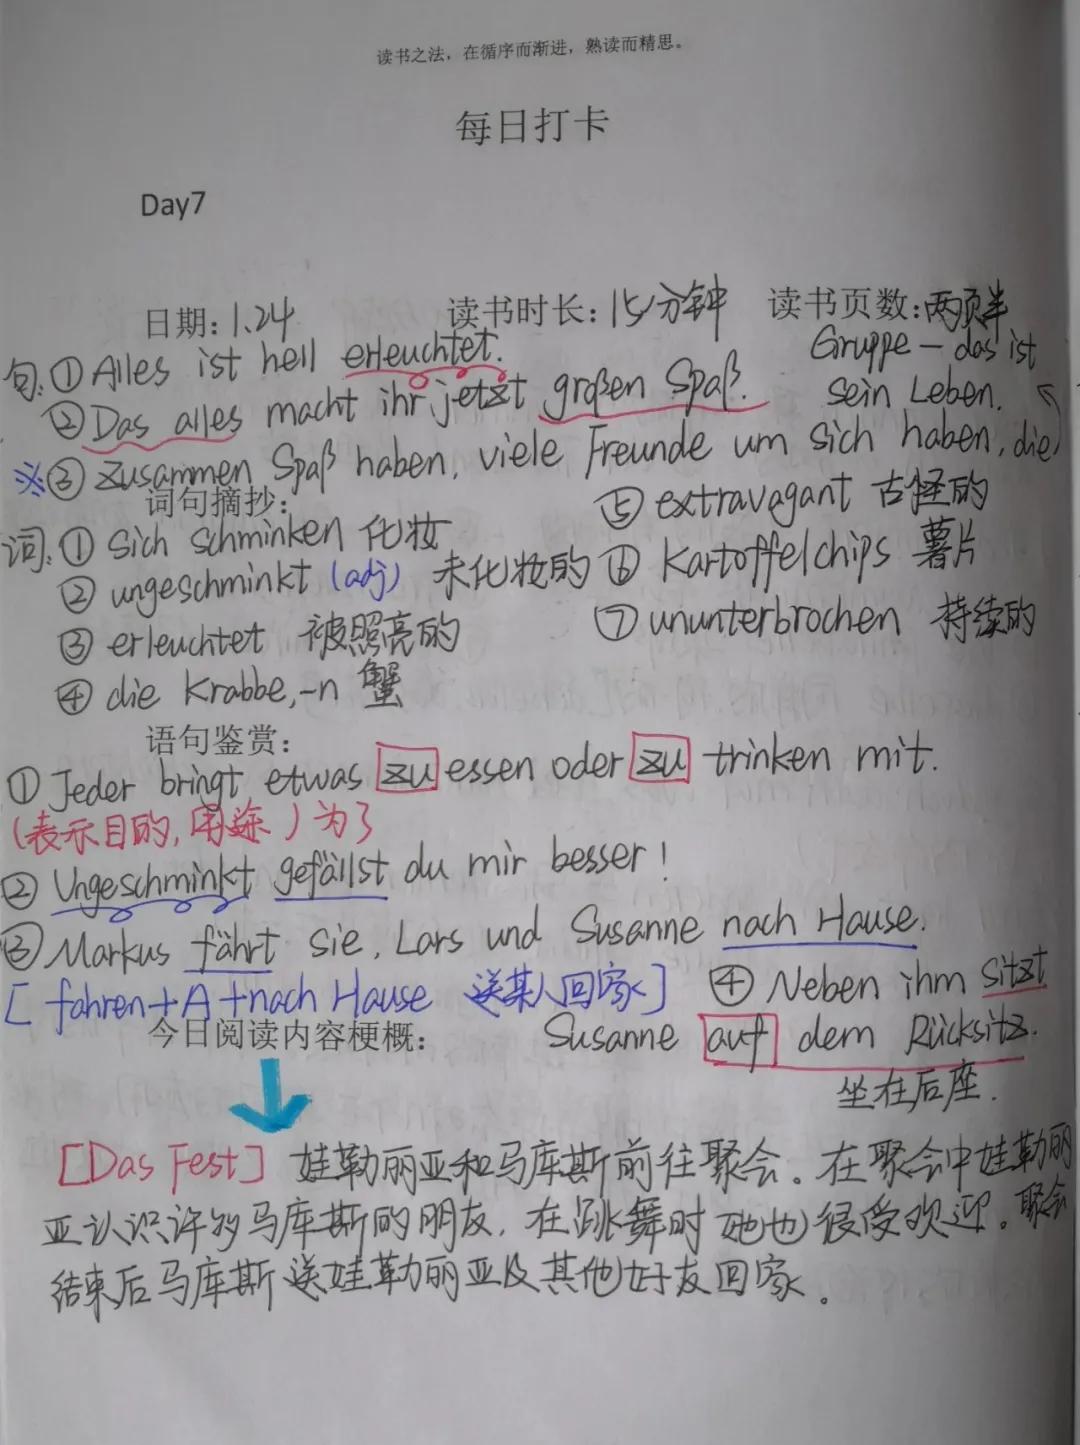 读书之法，在循序而渐进，熟读而精思。
每日打卡
Day7
日期：1.24 读书时长：15分钟 读书页数：两页半
句：① Alles ist hell erleuchtet.
② Das alles macht ihr jetzt großen Spaß.
※③ Zusammen Spaß haben, viele Freunde um sich haben, die
Gruppe — das ist
sein Leben.
词句摘抄：
词：① sich schminken 化妆
② ungeschminkt (adj) 未化妆的
③ erleuchtet 被照亮的
④ die Krabbe,-n 蟹
⑤ extravagant 古怪的
⑥ Kartoffelchips 薯片
⑦ ununterbrochen 持续的
语句鉴赏：
① Jeder bringt etwas zu essen oder zu trinken mit.
(表示目的，用途) 为了
② Ungeschminkt gefällst du mir besser!
③ Markus fährt sie, Lars und Susanne nach Hause.
[ fahren+A+nach Hause 送某人回家]
④ Neben ihm sitzt
Susanne auf dem Rücksitz.
坐在后座.
今日阅读内容梗概：
[Das Fest] 娃勒丽亚和马库斯前往聚会。在聚会中娃勒丽
亚认识许多马库斯的朋友，在跳舞时她也很受欢迎。聚会
结束后马库斯送娃勒丽亚及其他好友回家。